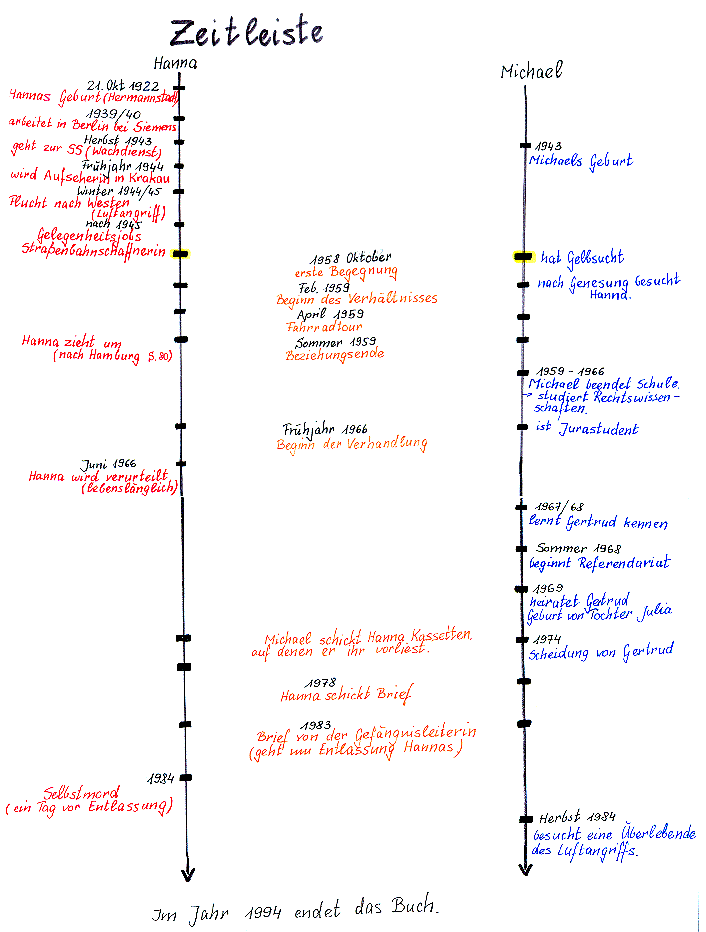 Zeitleiste
Hanna
21. Okt 1922
Hannas Geburt (Hermannstadt)
1939/40
arbeitet in Berlin bei Siemens
Herbst 1943
geht zur SS (Wachdienst)
Frühjahr 1944
wird Aufseherin in Krakau
Winter 1944/45
Flucht nach Westen
(Luftangriff)
nach 1945
Gelegenheitsjobs
Straßenbahnschaffnerin
Hanna zieht um
(nach Hamburg S. 80)
Juni 1966
Hanna wird verurteilt
(lebenslänglich)
1984
Selbstmord
(ein Tag vor Entlassung)
1958 Oktober
erste Begegnung
Feb. 1959
Beginn des Verhältnisses
April 1959
Fahrradtour
Sommer 1959
Beziehungsende
Frühjahr 1966
Beginn der Verhandlung
Michael schickt Hanna Kassetten,
auf denen er ihr vorliest.
1978
Hanna schickt Brief
1983
Brief von der Gefängnisleiterin
(geht um Entlassung Hannas)
Michael
1943
Michaels Geburt
hat Gelbsucht
nach Genesung besucht
Hanna.
1959 - 1966
Michael beendet Schule.
→ studiert Rechtswissen-
schaften.
ist Jurastudent
1967/68
lernt Gertrud kennen
Sommer 1968
beginnt Referendariat
1969
heiratet Gertrud
Geburt von Tochter Julia
1974
Scheidung von Gertrud
Herbst 1984
besucht eine Überlebende
des Luftangriffs.
Im Jahr 1994 endet das Buch.